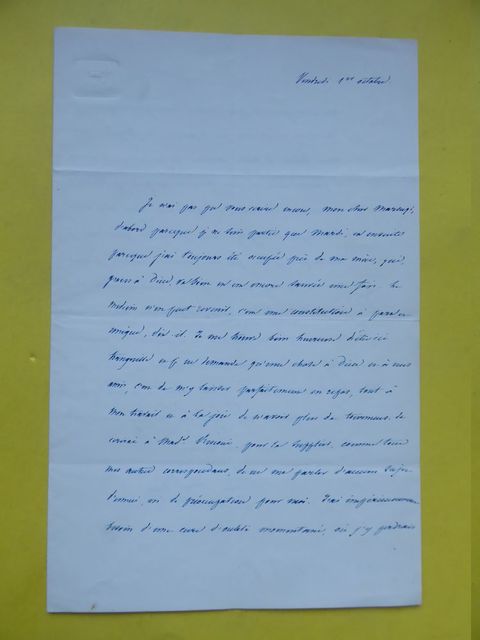 Vendredi 1er octobre
Je n'ai pas pu vous écrire encore, mon cher
d'abord parceque je ne suis partie que mardi, et ensuite
parceque j'ai toujours été occupée près de ma mère, qui,
grâce à Dieu, va bien et est encore sauvée une fois. Le
médecin n'en peut revenir, c'est une constitution à part et
unique, dit-il. Je me trouve bien heureuse d'être ici
tranquille et je ne demande qu'une chose à Dieu et à mes
amis, c'est de m'y laisser parfaitement en repos, tout à
mon travail et à la joie de n'avoir plus de tourmens. Je
écrirai à Made pour la supplier, comme tous
mes autres correspondans, de ne me parler d'aucun sujet
d'ennui, ou de préoccupation pour moi. J'ai impérieusement
besoin d'une cure d'oubli momentané, où j'y perdrais